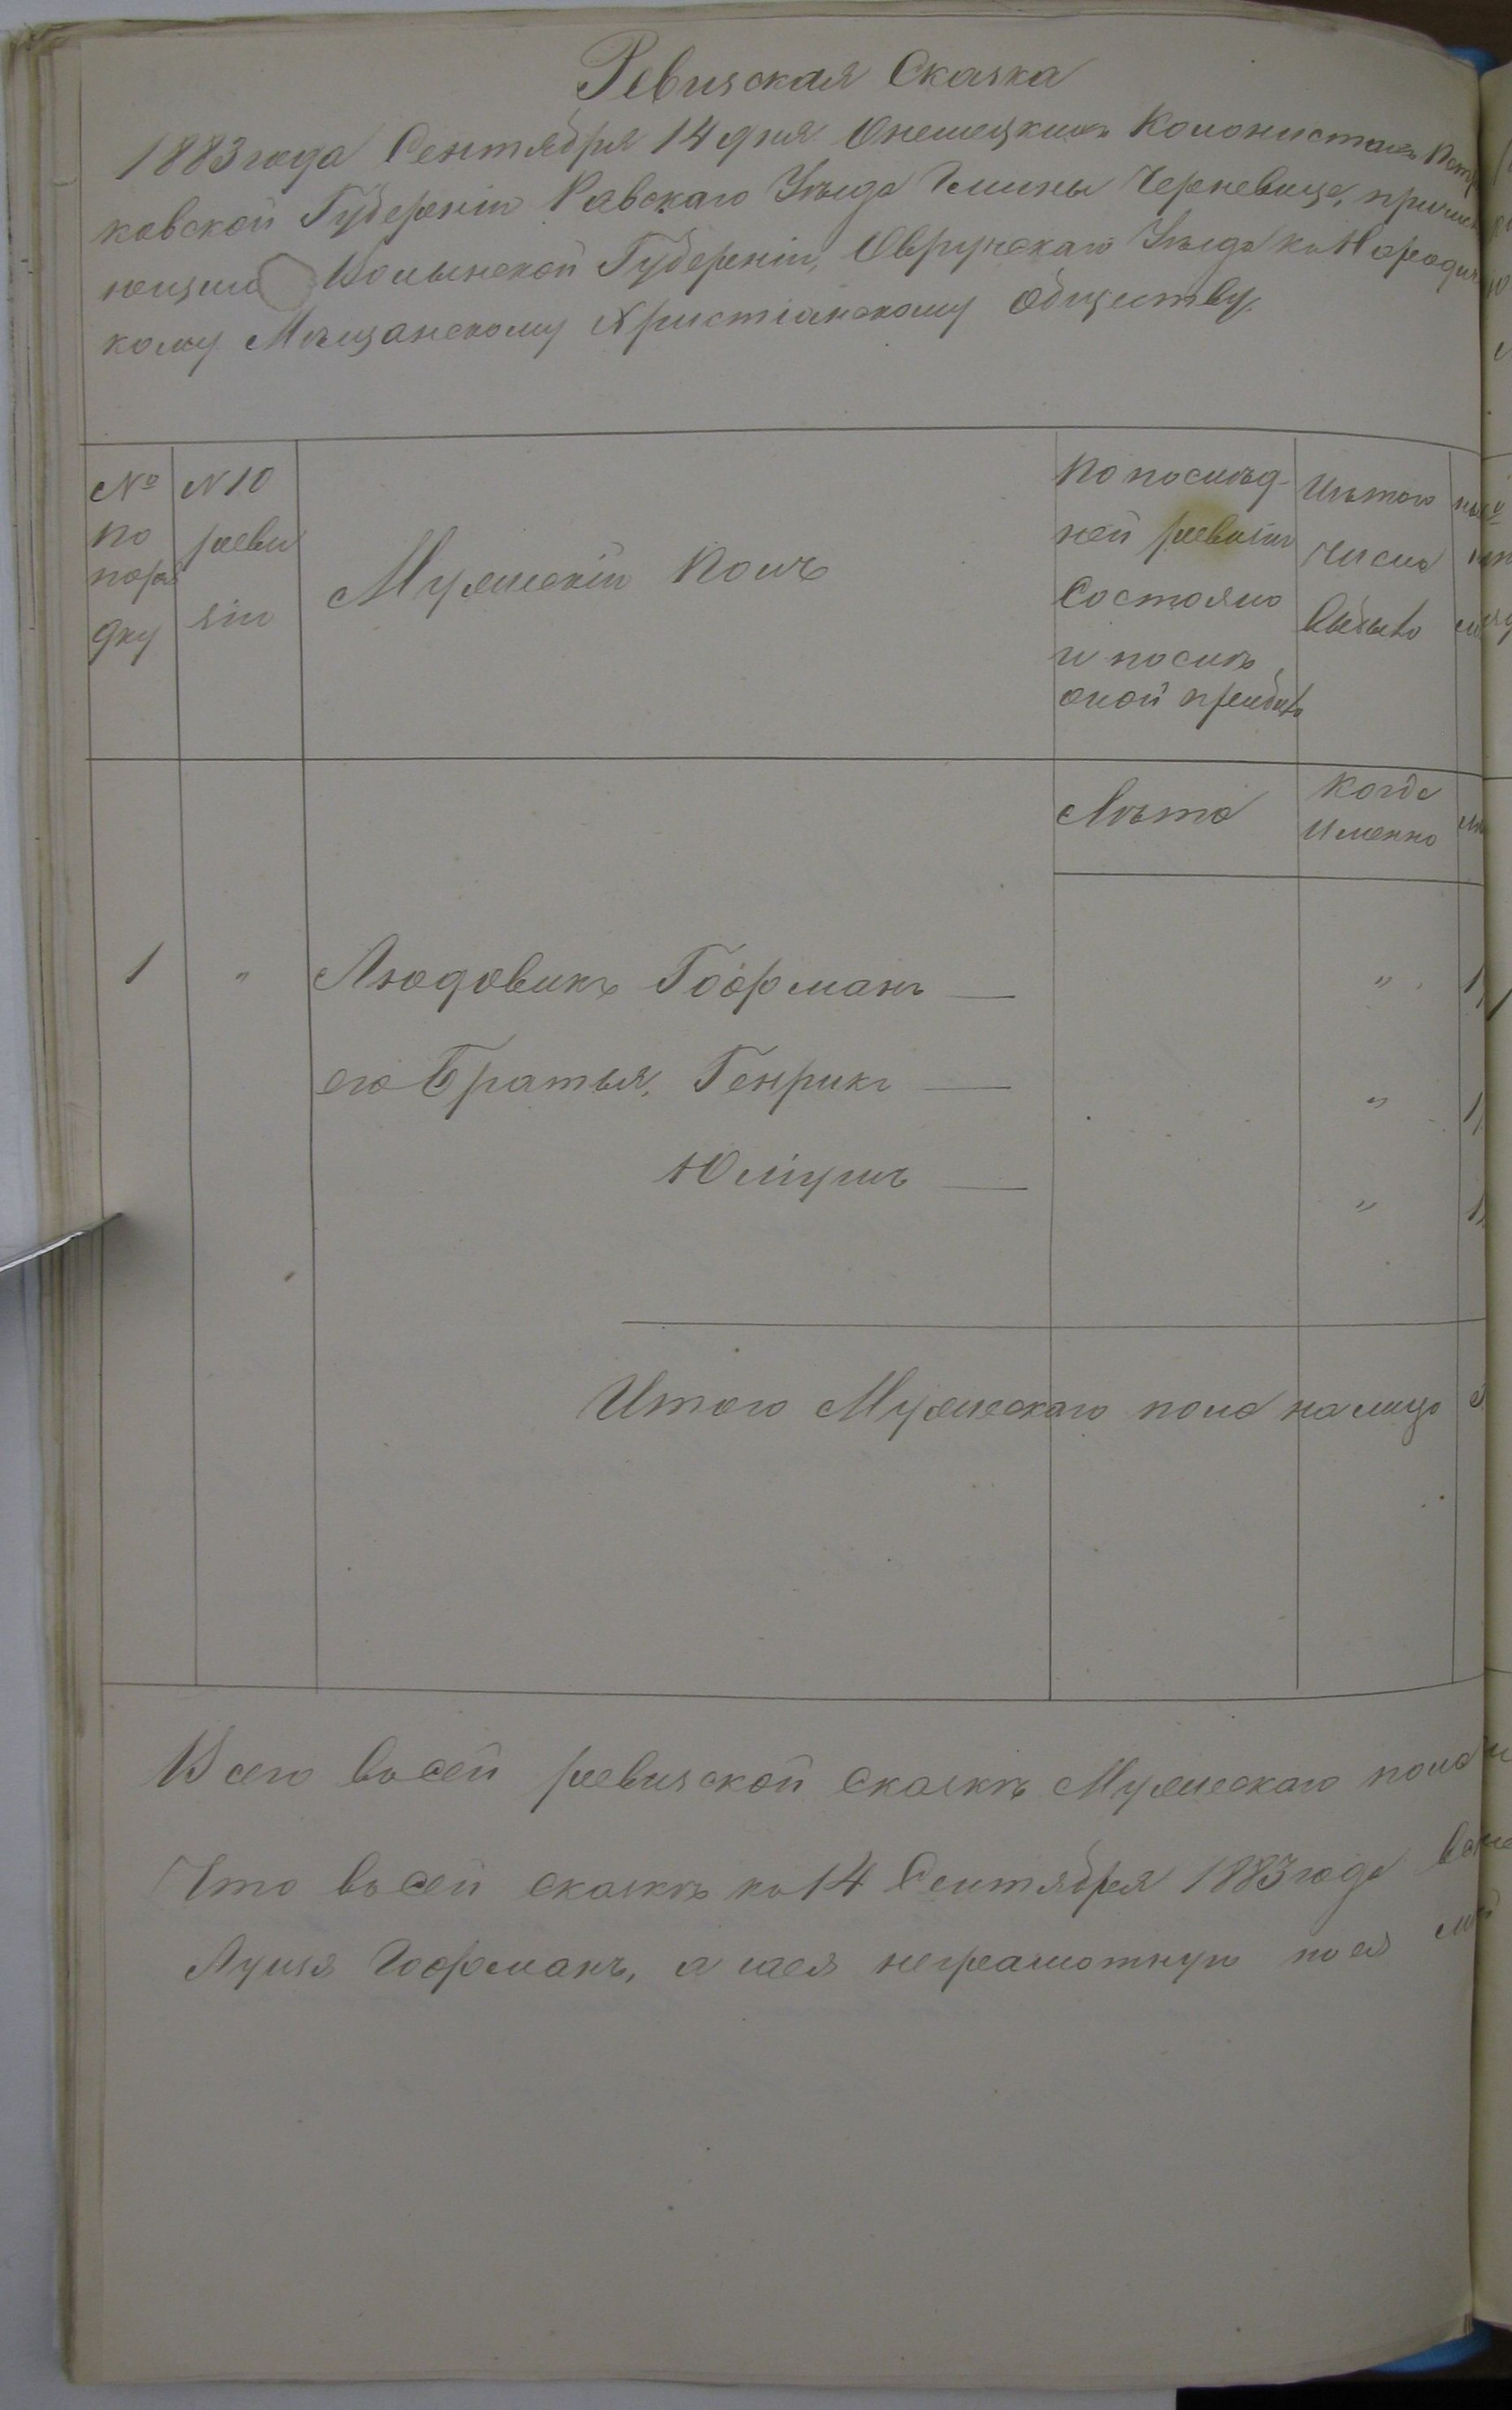 Ревизская Сказка
1883 года Сентября 14 дня О немецких Колонистах Петр
ковской Губерніи Равскаго Уѣзда Гмины Черневице, причис
Волынской Губерніи, Овручскаго Уѣзда къ Народич
кому Мѣщанскому Христіанскому Обществу.
№ по поря дку
N 10 реви зіи
Мужескій Полъ
По послѣд ней ревизіи Состояло и послѣ оной прибыло
Изъ того числа выбыло
Лѣта
Когда Именно
1 " Людовикъ Гофманъ — "
его Братья, Генрикъ — "
Юліушъ — "
Итого Мужескаго пола на лицо
Всего въ сей ревизской сказкѣ Мужескаго пола
Что въ сей сказкѣ по 14 Сентября 1883 года
Гофманъ, а неграмотную по ея